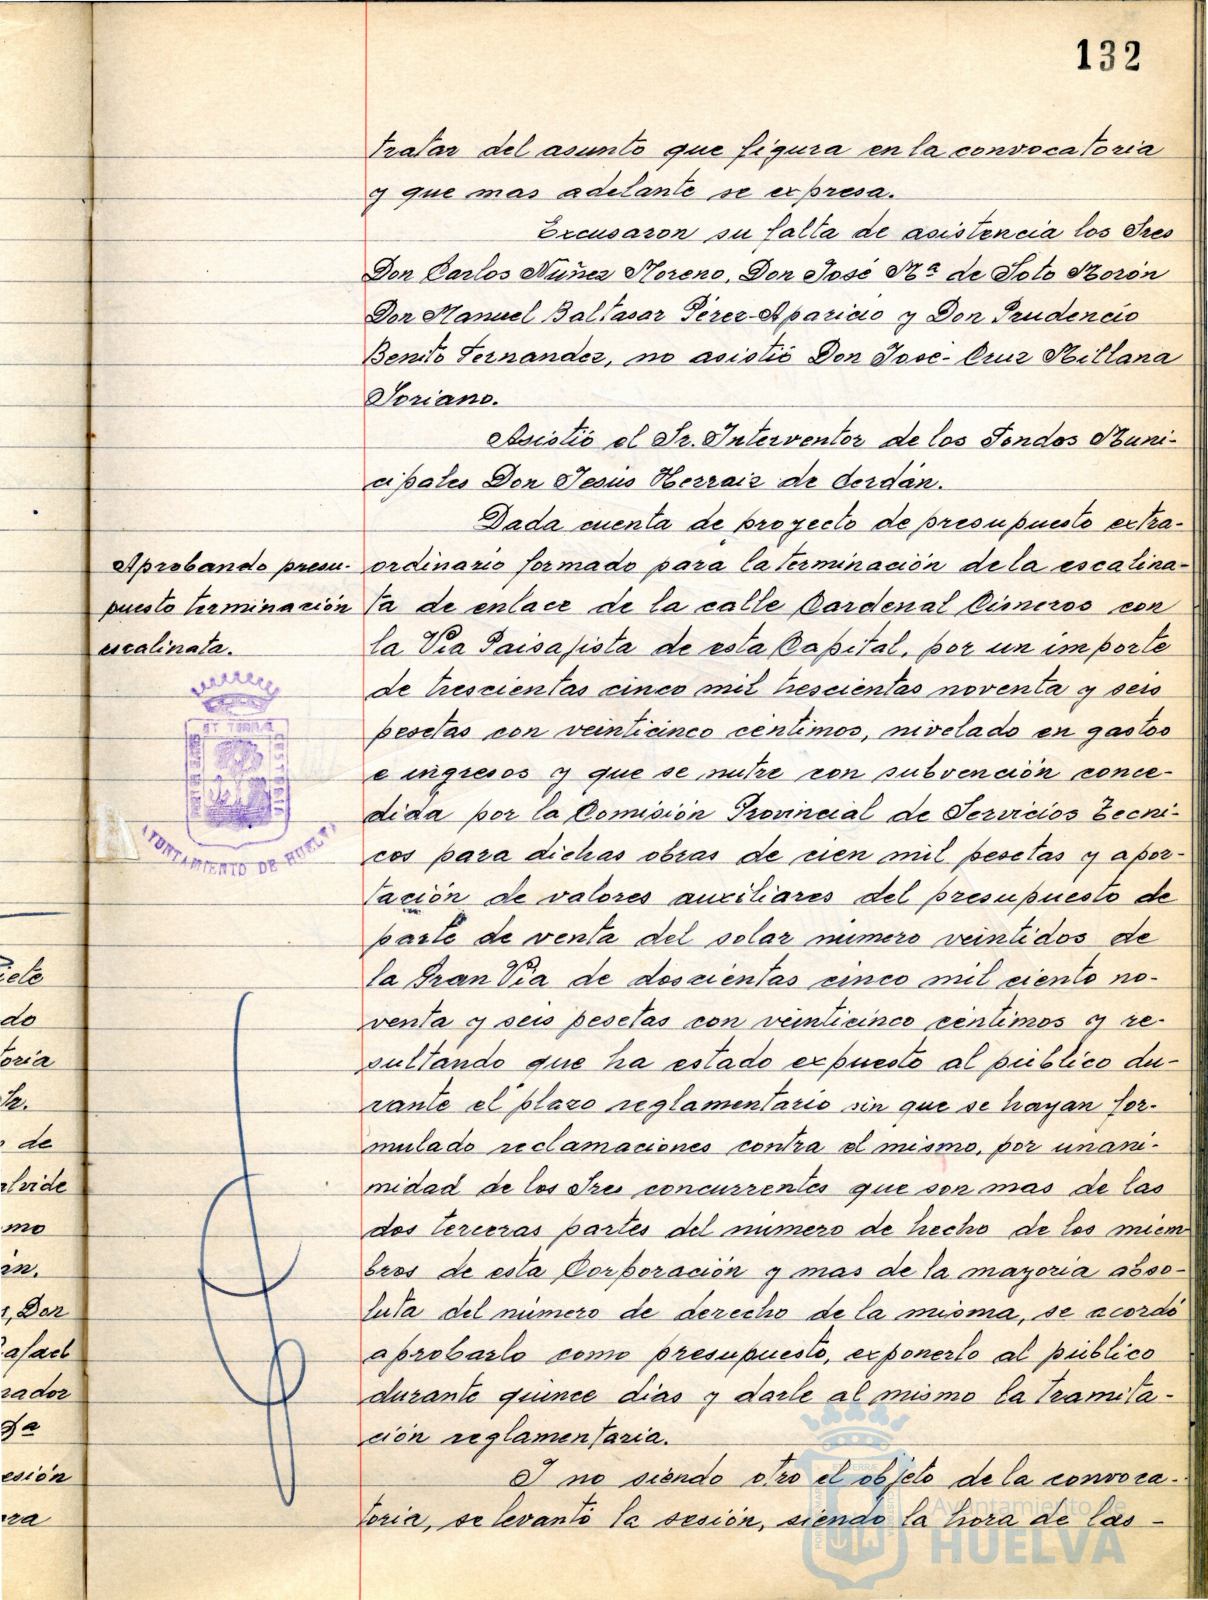 132
tratar del asunto que figura en la convocatoria
y que mas adelante se expresa.
Excusaron su falta de asistencia los Sres
Don Carlos Núñez Moreno, Don José Mª de Soto Morón
Don Manuel Baltasar Pérez-Aparicio y Don Prudencio
Benito Fernandez, no asistió Don José-Cruz Millana
Soriano.
Asistió el Sr. Interventor de los Fondos Muni-
cipales Don Jesús Herraiz de Cerdán.
Dada cuenta de proyecto de presupuesto extra-
Aprobando presu-
puesto terminación
escalinata.
ordinario formado para la terminación de la escalina-
ta de enlace de la calle Cardenal Cisneros con
la Vía Paisajista de esta Capital, por un importe
de trescientas cinco mil trescientas noventa y seis
pesetas con veinticinco céntimos, nivelado en gastos
e ingresos y que se nutre con subvención conce-
dida por la Comisión Provincial de Servicios Tecni-
cos para dichas obras de cien mil pesetas y apor-
tación de valores auxiliares del presupuesto de
parte de venta del solar número veintidos de
la Gran Vía de doscientas cinco mil ciento no-
venta y seis pesetas con veinticinco céntimos y re-
sultando que ha estado expuesto al público du-
rante el plazo reglamentario sin que se hayan for-
mulado reclamaciones contra el mismo, por unani-
midad de los Sres concurrentes que son mas de las
dos terceras partes del número de hecho de los miem
bros de esta Corporación y mas de la mayoría abso-
luta del número de derecho de la misma, se acordó
aprobarlo como presupuesto, exponerlo al público
durante quince días y darle al mismo la tramita-
ción reglamentaria.
Y no siendo otro el objeto de la convoca-
toria, se levantó la sesión, siendo la hora de las -
AYUNTAMIENTO DE HUELVA
iete
do
toria
Sr.
de
alvide
mo
án.
, Don
Rafael
rador
Dª
esión
ra
Ayuntamiento de
HUELVA